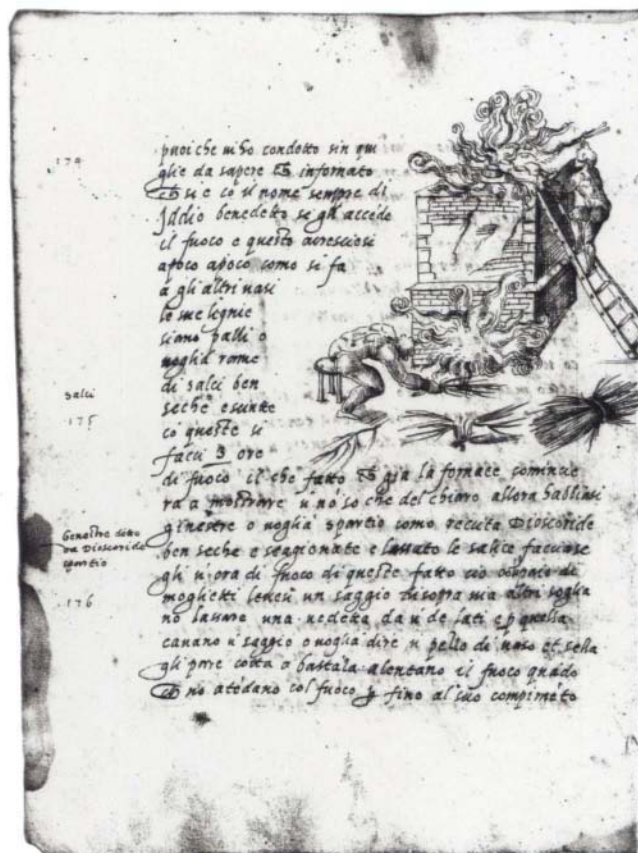 174
puoi che ui ho condotto sin qui
gli e da sapere infornato
si e co il nome sempre di
Iddio benedetto se gli accede
il fuoco e questo acresciesi
apoco apoco como si fa
a gli altri uasi
le sue legnie
siano palli o
uoglia rame
di salci ben
seche e sunte
co queste si
facci 3 ore
di fuoco il che fatto gia la fornace comincie
ra a mostrare u no so che del chiaro allora habbiasi
ginestre o uoglia spartio como recita Dioscoride
ben seche e stagionate e lassato le salice facciase
gli u ora di fuoco di queste fatto cio
moghetti leuesi un saggio disopra ma altri soglia
no lassare una uedetta da u de lati e p quella
cauano u saggio o uoglia dire u pello di uaso et sella
gli pare cotta a bastaza alentano il fuoco quado
no atedano col fuoco fino al suo compimeto
salci
175
Genestre ditto
da Dioscoride
spartio
176